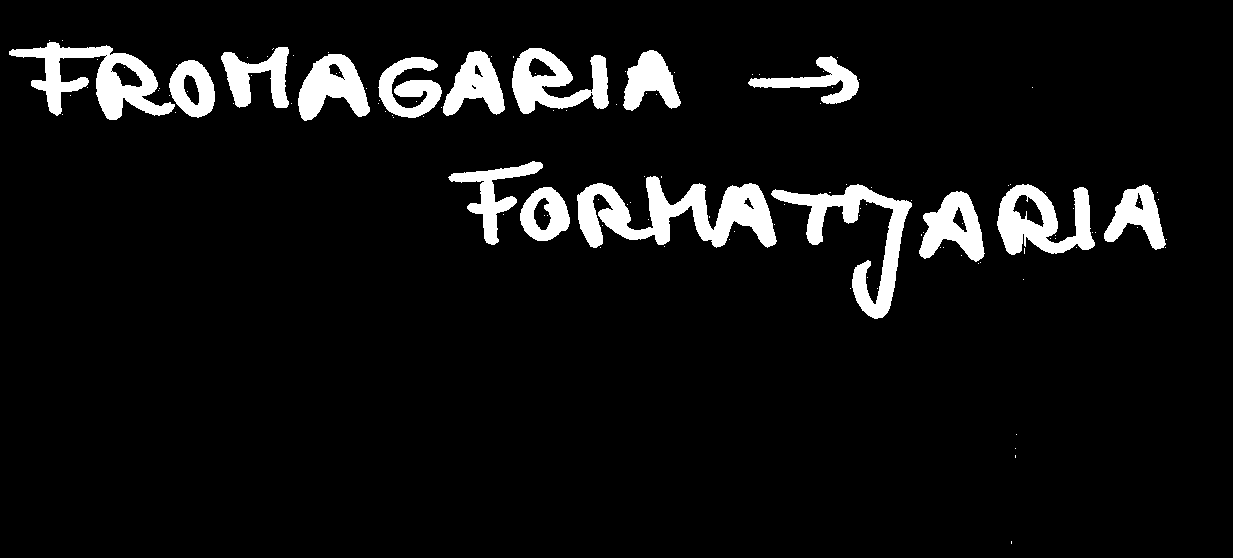 FROMAGARIA →
FORMATJARIA